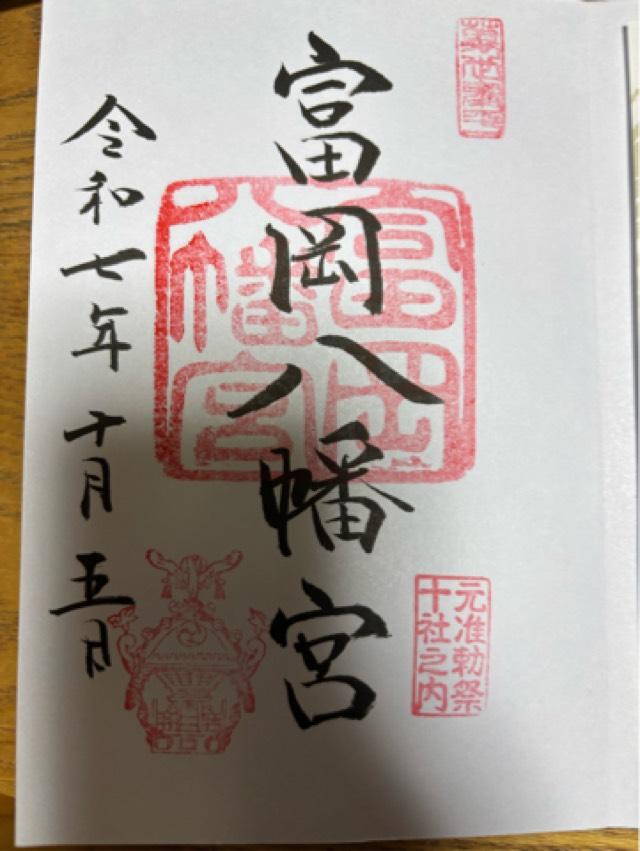 富岡八幡宮
富岡
八幡宮
元准勅祭
十社之内
令和七年十月五日